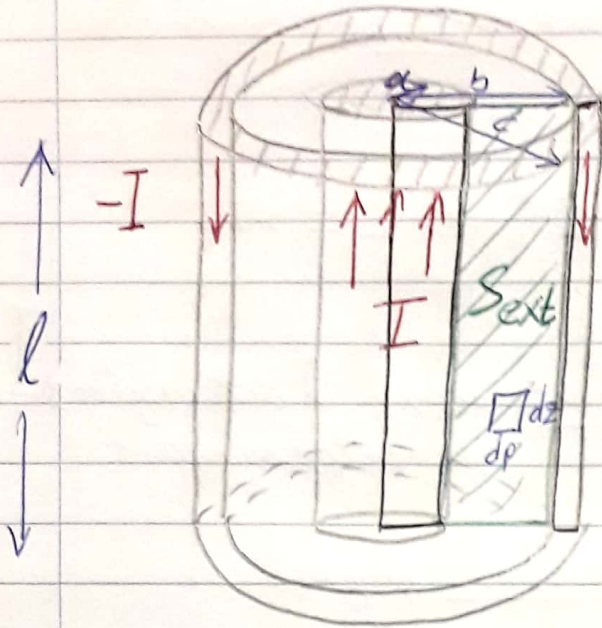 a b
c
-I
I
l
Sext
dz
dρ